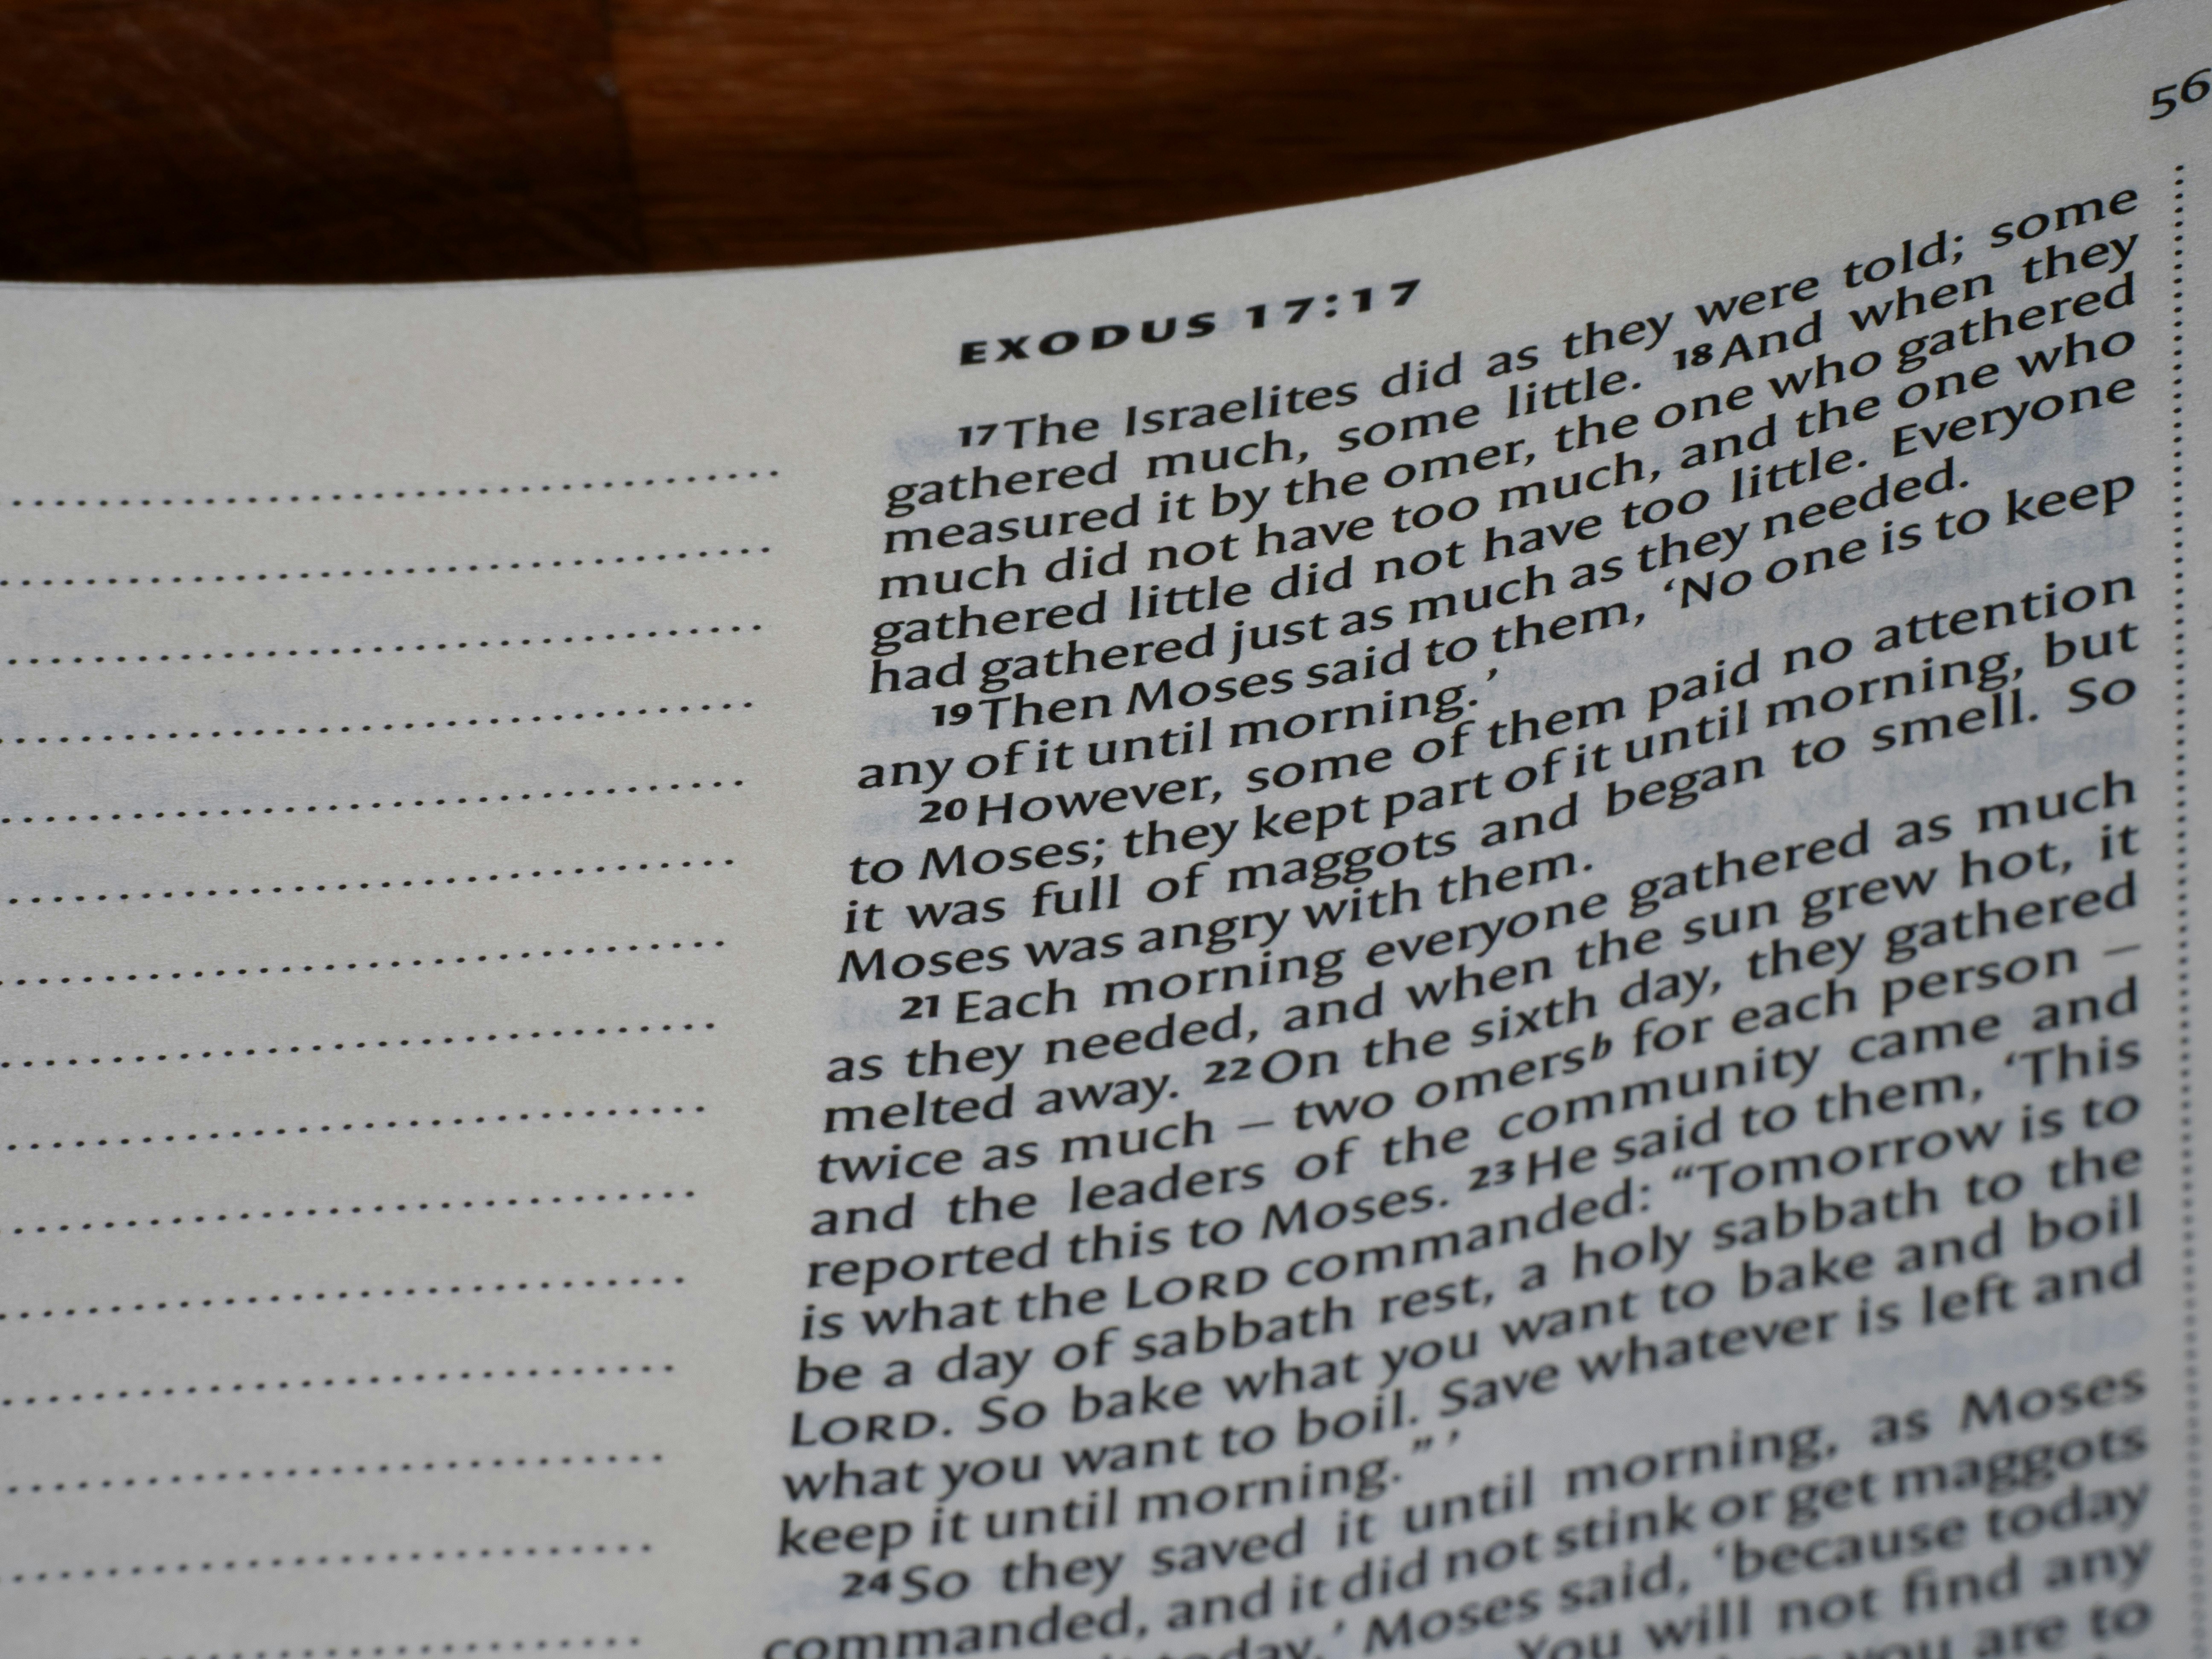 56
EXODUS 17:17
17 The Israelites did as they were told; some
gathered much, some little. 18 And when they
measured it by the omer, the one who gathered
much did not have too much, and the one who
gathered little did not have too little. Everyone
had gathered just as much as they needed.
19 Then Moses said to them, ‘No one is to keep
any of it until morning.’
20 However, some of them paid no attention
to Moses; they kept part of it until morning, but
it was full of maggots and began to smell. So
Moses was angry with them.
21 Each morning everyone gathered as much
as they needed, and when the sun grew hot, it
melted away. 22 On the sixth day, they gathered
twice as much – two omersb for each person –
and the leaders of the community came and
reported this to Moses. 23 He said to them, ‘This
is what the LORD commanded: “Tomorrow is to
be a day of sabbath rest, a holy sabbath to the
LORD. So bake what you want to bake and boil
what you want to boil. Save whatever is left and
keep it until morning.”’
24 So they saved it until morning, as Moses
commanded, and it did not stink or get maggots
today,’ Moses said, ‘because today
You will not find any
you are to